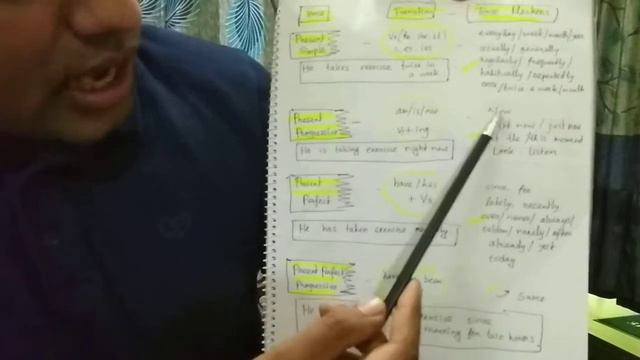 Tense Function Time Markers
Present Simple
V1 (He she it)
s, es, ies
everyday/week/month/year
usually/generally
regularly/frequently/
habitually/repeatedly
once/twice a week/month
He takes exercise twice in
a week
Present
Progressive
am/is/are
V1+ing
Now
right now/just now
at the/this moment
Look Listen
He is taking exercise right now
Present
Perfect
have/has
+ V3
since, for
lately, recently
ever/never/always/
seldom/rarely/often
already/yet
today
He has taken exercise recently
Present Perfect
Progressive
been
Same
He exercise since
morning for two hours